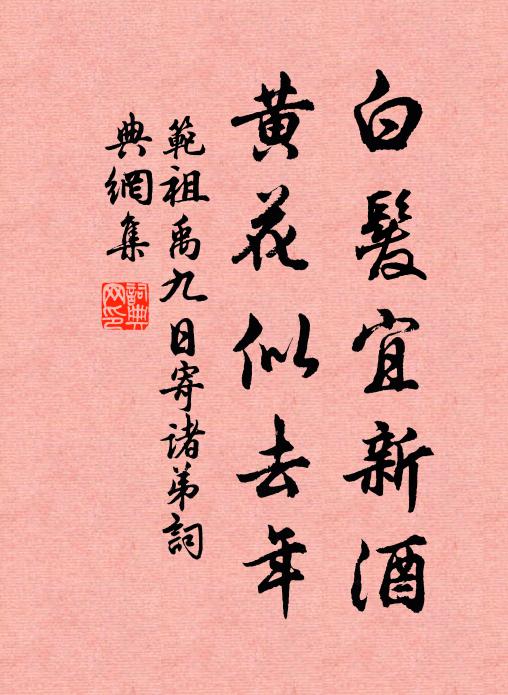 白髮宜新酒
黃花似去年
範祖禹九日寄諸弟詞
典網集
詞典网印